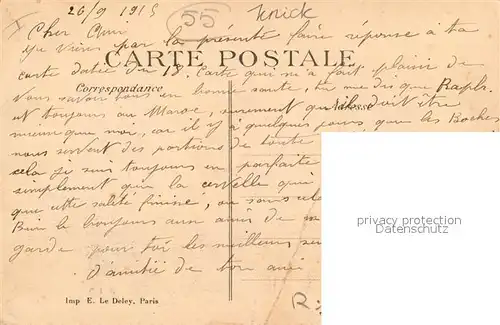 26/9 1915
55
Cher Ami
Je viens par la présente faire réponse à ta
CARTE POSTALE
carte datée du 18. Carte qui m'a fait plaisir de
Correspondance
Adresse
Vous savoir tous en bonne santé, tu me dis que Raph.
et toujours au Maroc, surement qu'il doit être
mieux que moi, car il y a quelques jours que les Boches
nous servent des portions de toute
cela je suis toujours en parfaite
simplement que la cervelle qui
que cette saleté finisse, ou sans cela
Bien le bonjour aux amis de
garde pour toi les meilleurs
d'amitié de ton ami
privacy protection
Datenschutz
Imp E. Le Deley, Paris